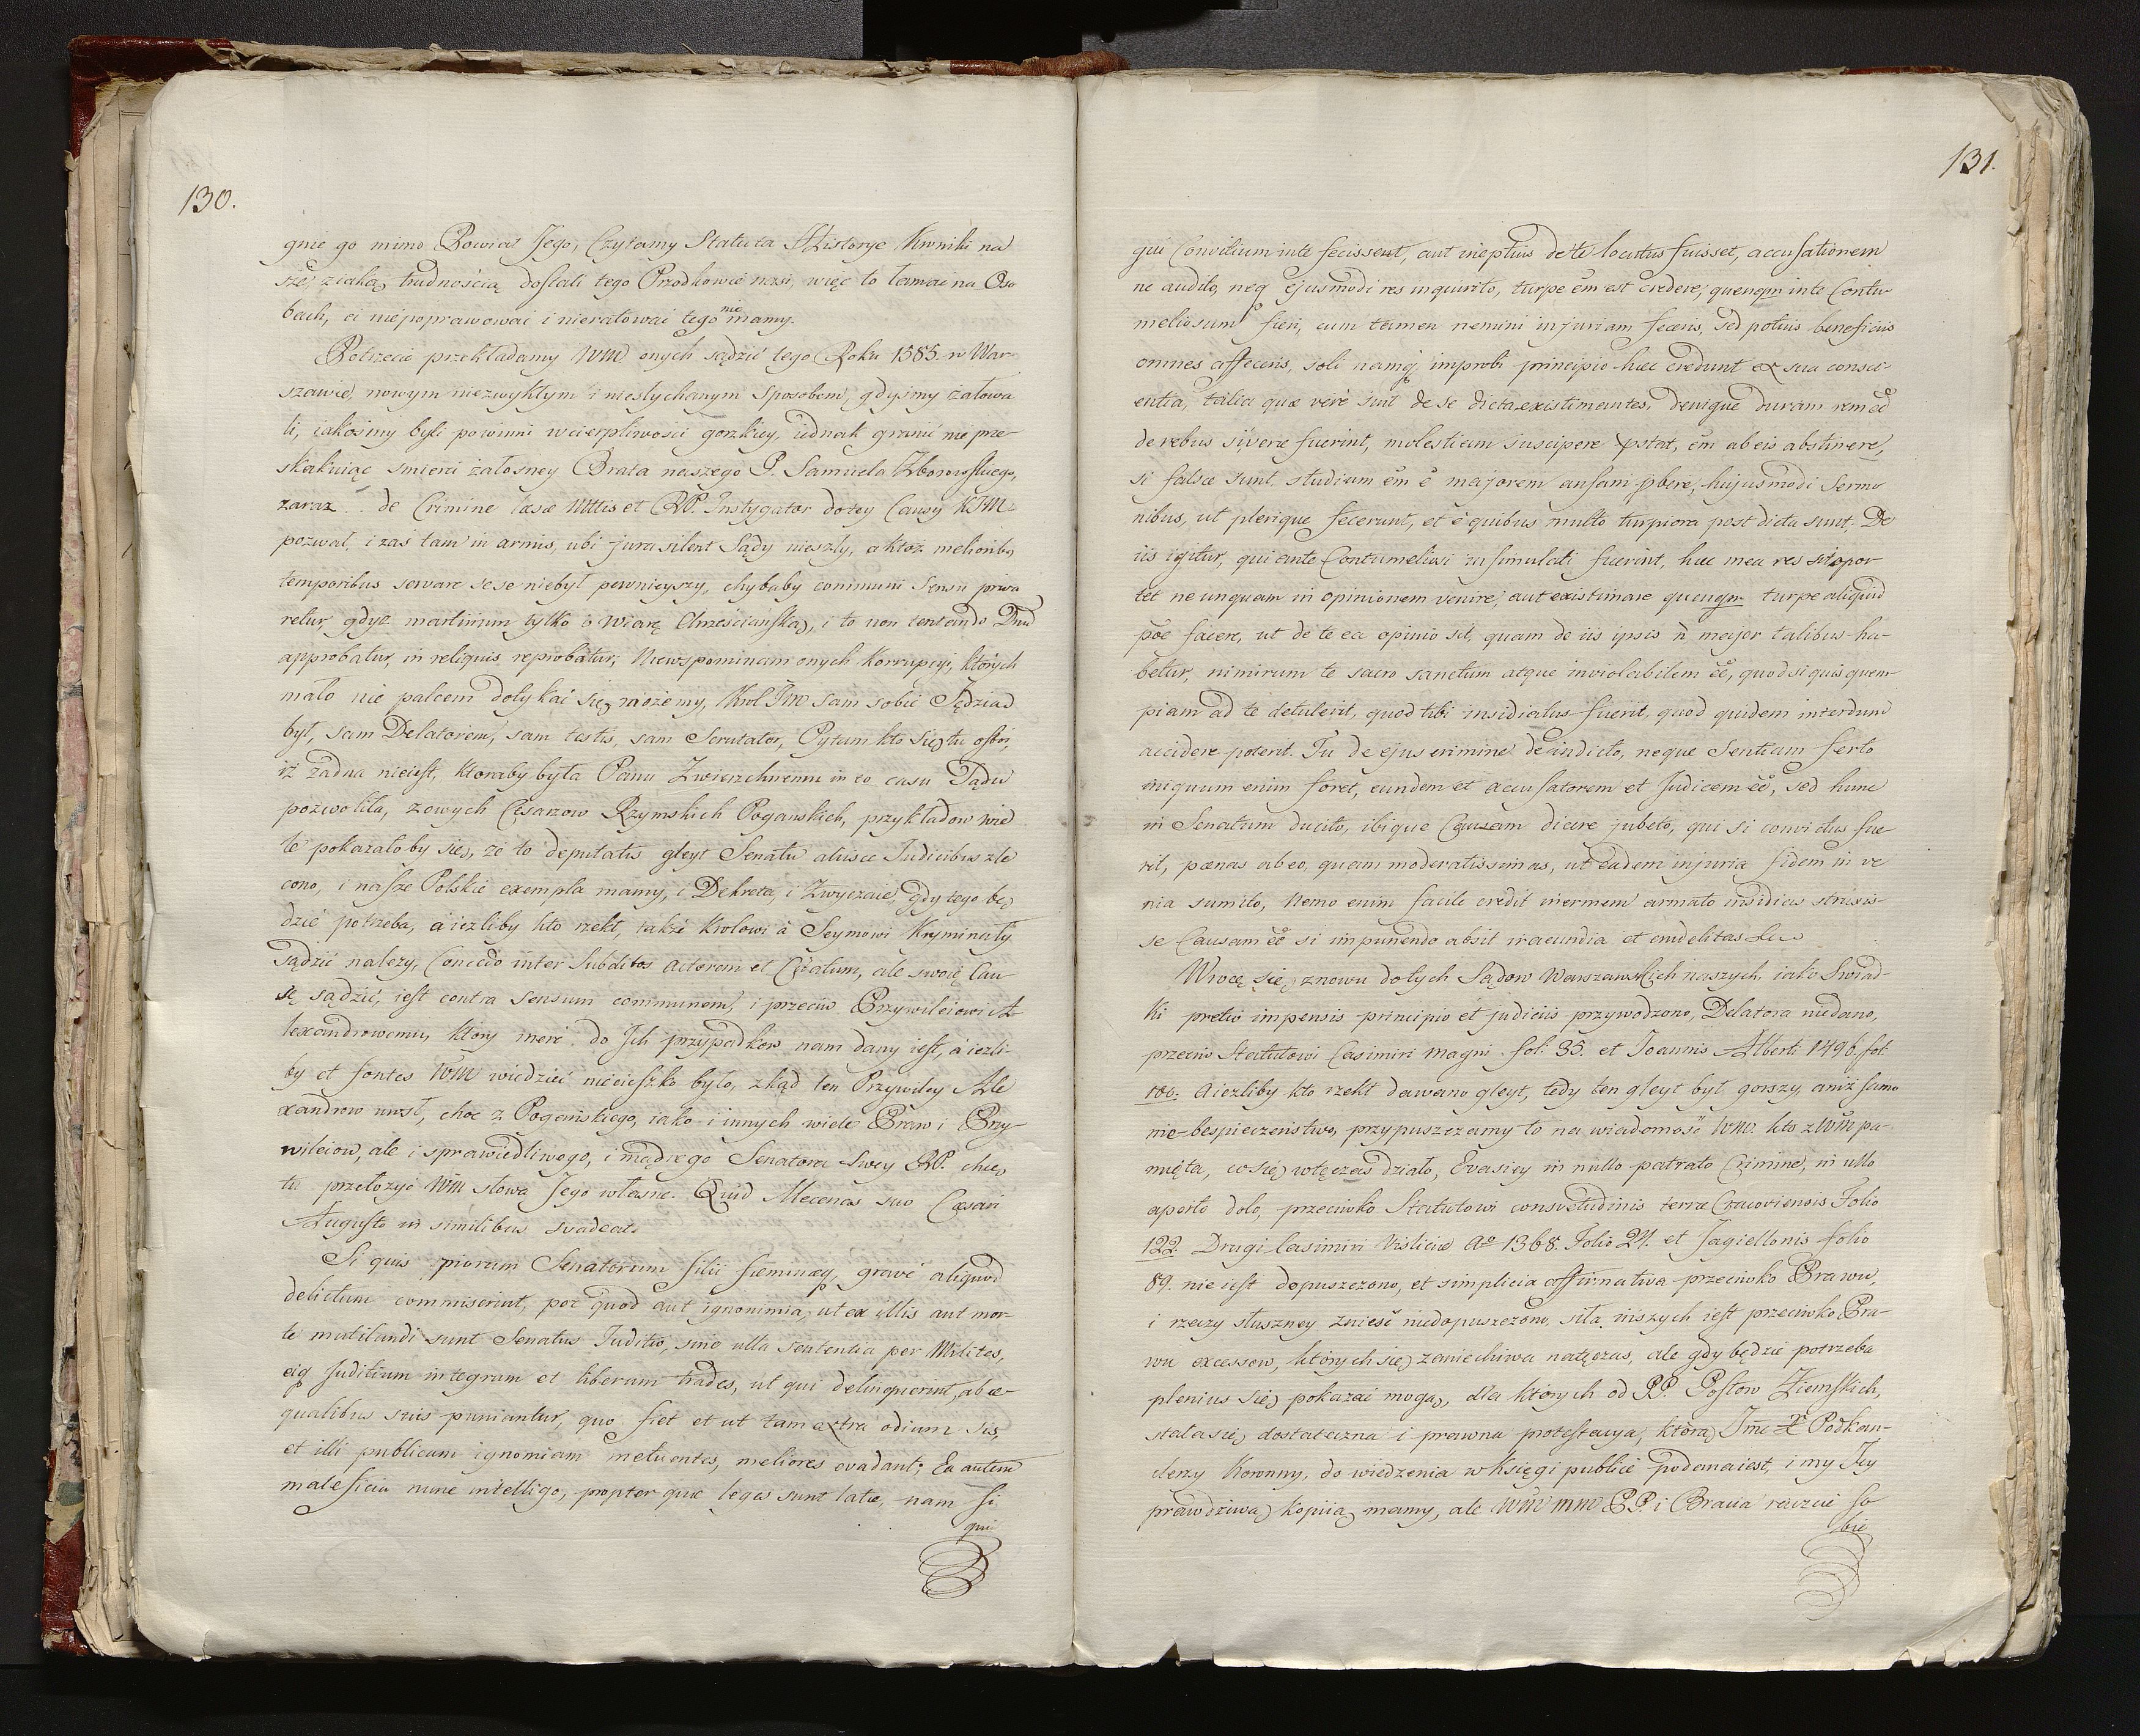 130.
gnie go mimo Powiat Jego, Czytamy Statuta Historye Kroniki na
sze, z iaką trudnością dostali tego Przodkowie nasi, więc to łamać na Oso
bach, ci niepoprawować i nieratować tego nie mamy.
Potrzecie przekładamy WM onych sądzić tego Roku 1585. w War-
szawie, nowym niezwykłym i niesłychanym sposobem, gdyśmy żałowa
li, iakośmy byli powinni w cierpliwości gorzkiey, iednak granic nie prze-
skakuiąc smierci żałosney Brata naszego P. Samuela Zborowskiego,
zaraz de Crimine læsæ Mttis et RP. Instygator do tey Causy KJM.
pozwał, i zaś tam in armis, ubi jura silent Sądy nieszły, a ktoż melioribs
temporibus servare sese niebył pewnieyszy, chybaby communi sensu priva
retur, gdyż martirium tylko o wiarę Chrześciańską, i to non tentando Dnũ
approbatur, in reliquis reprobatur, Niewspominam onych Korrupcyi, których
mało nie palcem dotykać się możemy, Krol Jm sam sobie Sędzią
był, sam Delatorem, sam testis, sam Scrutator, Pytam kto się tu osoi,
iż żadna nieiest, ktoraby była Panu Zwierzchnemu in eo casu Sądu
pozwoliła, z owych Cesarzow Rzymskich Pogańskich, przykładow wie
le pokazałoby się, że to deputatis gleyt Senatu aliisce Judicibus zle
cono, i nasze Polskie exempla mamy, i Dekreta, i Zwyczaie, gdy tego bę
dzie potrzeba, á iezliby kto rzekł, także Krolowi à Seymowi Kryminały
sądzić nalezy, Concedo inter Subditos Actorem et Citatum, ale swoię Cau-
sę sądzić, iest contra sensum communem, i przeciw Przywileiowi A-
lexandrowemu, ktory mere do Ich przypadkow nam dany iest, á iezli-
by et fontes WM wiedzieć niecieszko było, zkąd ten Przywiley Ale
xandrow urosł, choc z Pogańskiego, iako i innych wiele Praw i Przy-
wileiow, ale i sprawiedliwego, i mądrego Senatora swey RP. chcę
tu przełożyć WM słowa Jego własne. Quid Mecenas suo Cæsari
Augusto in similibus svadeat.
Si quis piorum Senatorum filii fæminæq, grave aliquod
delictum commiserint, poe quod aut ignonimia, ut ex illis aut mor-
te mutilandi sunt Senatus Juditio, sine ulla sententia per Milites,
eiq Juditium integrum et liberum trades, ut qui delinquerint, ab æ-
qualibus suis puniantur, quo fiet et ut tam extra odium sis,
et illi publicam ignomiam metuentes, meliores evadant; Ea autem
maleficia nunc intelligo, propter quæ leges sunt latæ, nam si
qui
131.
qui Convitium inte fecissent, aut ineptius de te locutus fuisset, accusationem
ne audito, neq ejusmodi res inquirito, turpe em̃ est credere, quenqm inte Contu-
meliosum fieri, cum tamen nemini injuriam feceris, sed potius beneficiis
omnes affeceris, soli namq improbi principio hæc credunt ex sua consci-
entia, talia quæ vere sint de se dicta existimantes, denique duram rem ẽẽ
de rebus si veræ fuerint, molestiam suscipere pstat, em̃ ab eis abstinere,
si falsæ sunt, studium em̃ ẽ majorem ansam pbere, hujusmodi Sermo
nibus, ut plerique fecerunt, et è quibus multo turpiora post dicta sunt. De
iis igitur, qui ante Contumeliosi insimulati fuerint, hæc mea res sit opor
tet ne unquam in opinionem venire, aut existimare quenqm turpe aliquid
poẽ facere, ut de te ea opinio sit, quam de iis ipsis ñ major talibus ha-
betur, nimirum te sacro sanctum atque inviolabilem ẽẽ, quod si quis quem-
piam ad te detulerit, quod tibi insidiatus fuerit, quod quidem interdum
accidere poterit. Tu de ejus crimine de indicto, neque Sentiam ferto
iniquum enim foret, eundem et accusatorem et Judicem ẽẽ, sed hunc
in Senatum ducito, ibique Causam dicere jubeto, qui si convictus fue
rit, pænas ab eo, quam moderatissimas, ut eadem injuria fidem in ve
nia sumito, Nemo enim facile credit inermem armato insidias struxis-
se Causam ẽẽ si impunendo absit iracundia et crudelitas
Wrocę się znowu do tych Sądow Warszawskich naszych, iako Swiad-
ki pretio impensis principio et judiciis przywodzono, Delatora niedano,
przeciw Statutowi Casimiri magni fol. 35. et Joannis Alberti 1496. fol.
100. A iezliby kto rzekł dawano gleyt, tedy ten gleyt był gorszy, aniż samo
nie-bespieczeństwo, przypuszczamy to na wiadomość WM. kto z WM pa-
mięta, co się wtęczas działo, Evasiey in nullo patrato Crimine, in ullo
aperto dolo, przeciwko Statutowi consvetudinis terræ Cracoviensis Folio
122. Drugi Casimiri Visliciæ Ao 1368. Folio 24. et Jagiellonis folio
89. nie iest dopuszczono, et simplicia affirmativa przeciwko Prawu,
i rzeczy słuszney znieść niedopuszczono, siła inszych iest przeciwko Pra-
wu excessow, których się zaniechiwa natęczas, ale gdy będzie potrzeba
plenius się pokazać mogą, dla których od PP. Posłow Ziemskich,
stała się dostateczna i prawna protestacya, którą Jm̃c X Podkan-
clerzy Koronny, do wiedzenia w Księgi publice podana iest, i my Jey
prawdziwą Kopiią mamy, ale WM mm PP. i Bracia raczcie so
bie